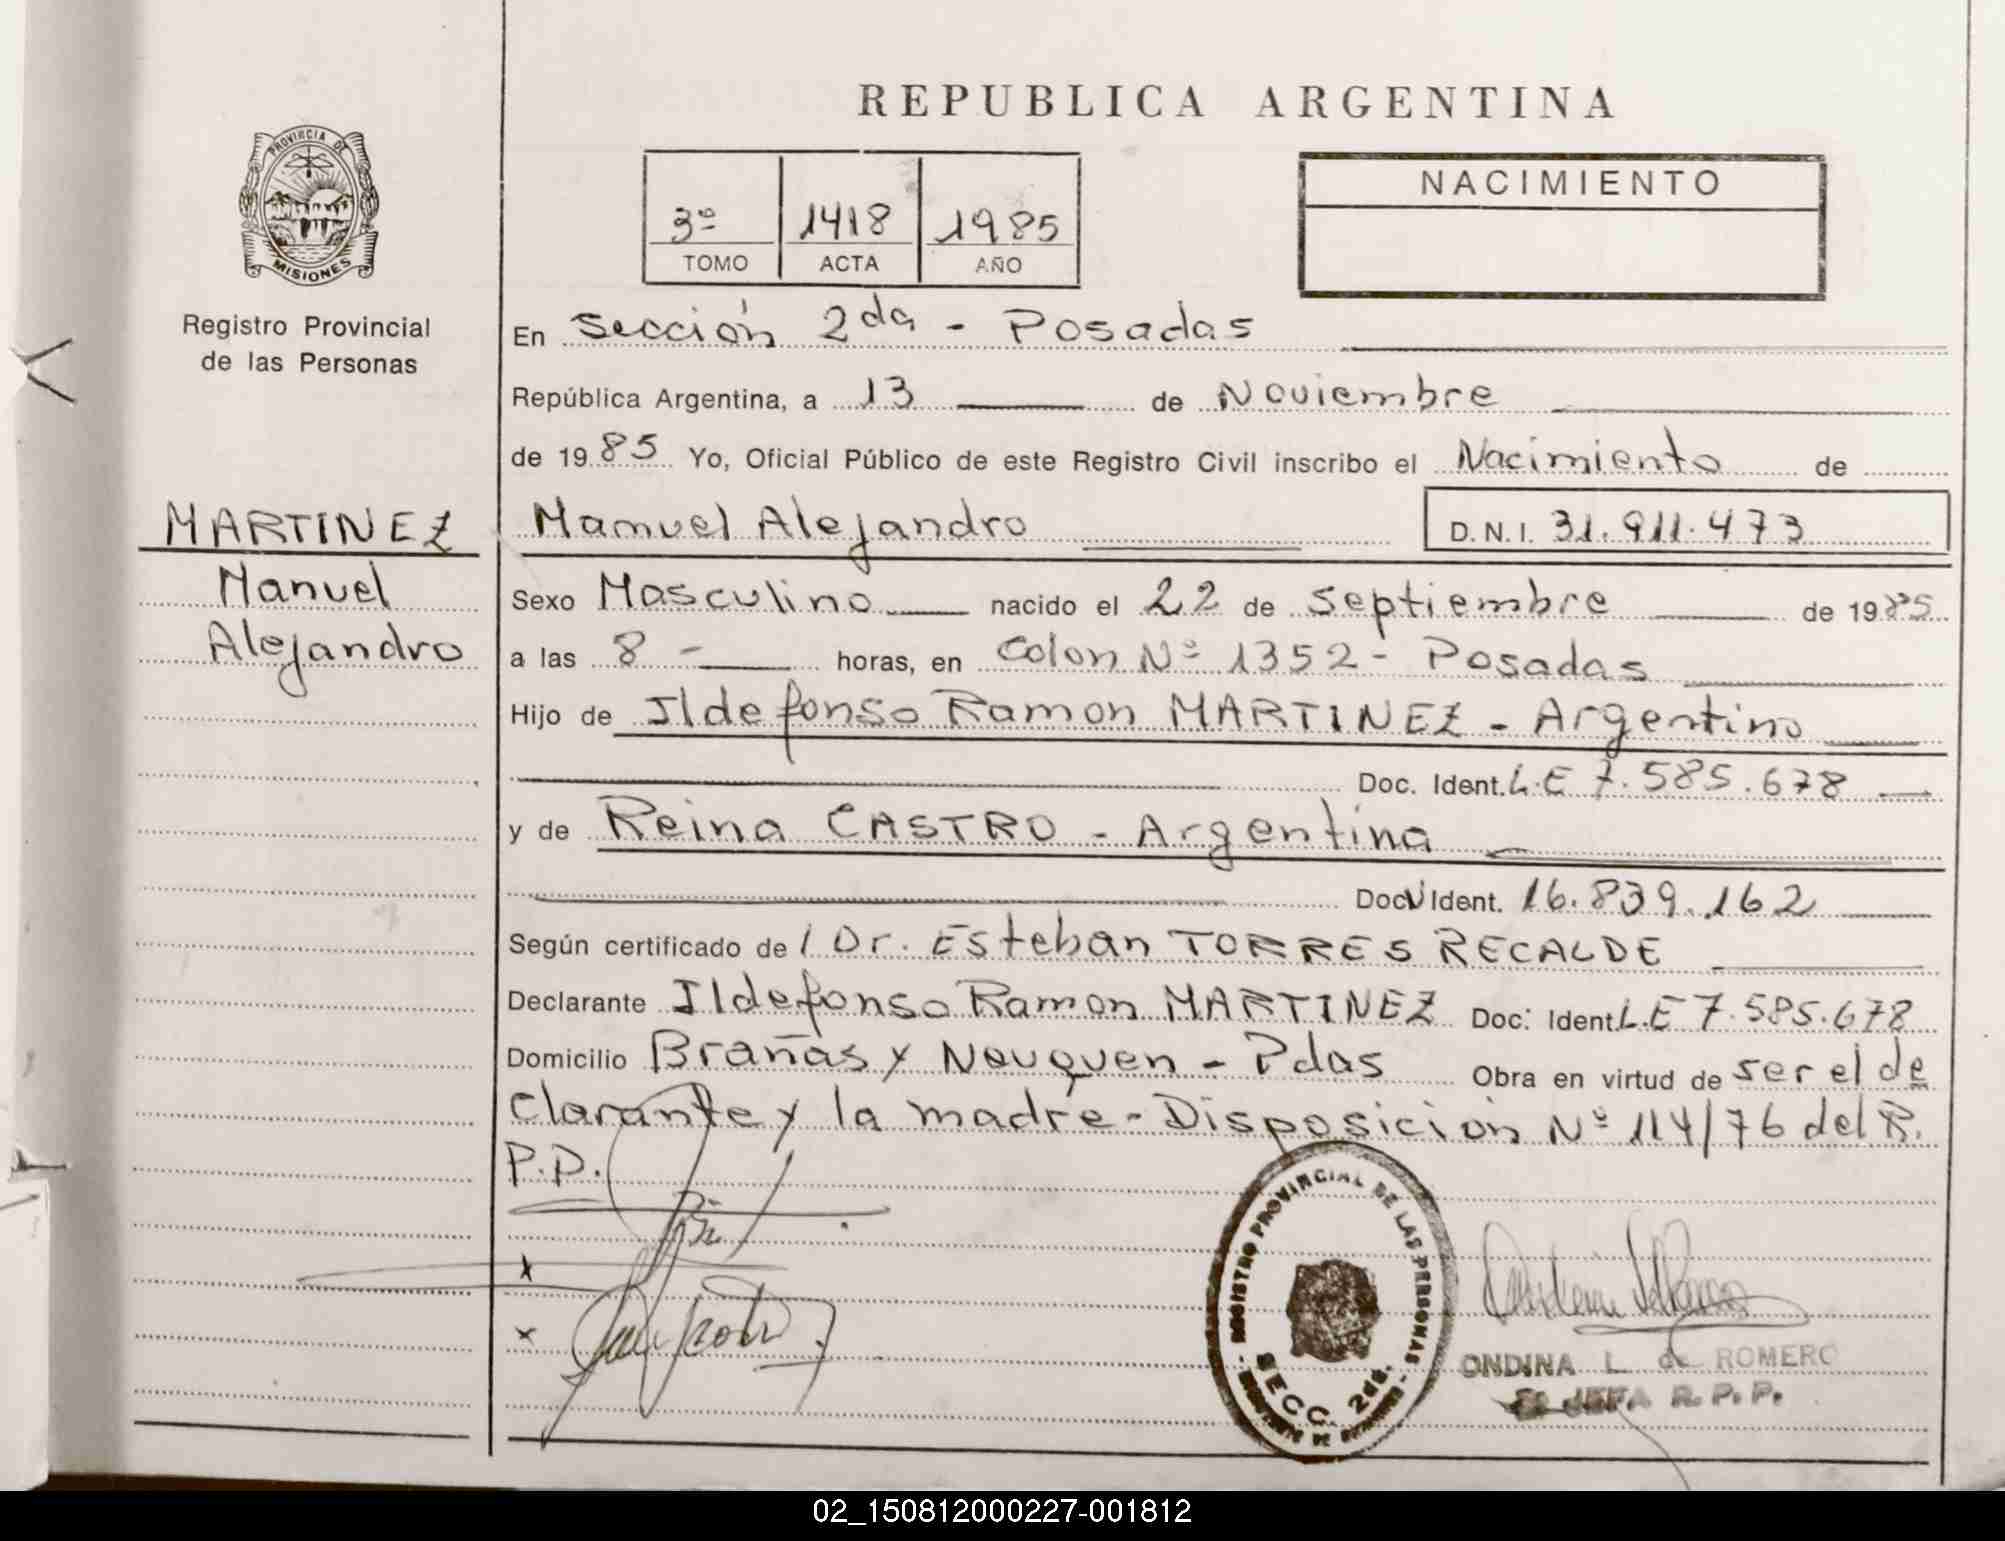 REPUBLICA ARGENTINA
PROVINCIA DE
MISIONES
Registro Provincial
de las Personas
3º 1418 1985
TOMO ACTA AÑO
NACIMIENTO
En Sección 2da - Posadas
República Argentina, a 13 de Noviembre
de 1985 Yo, Oficial Público de este Registro Civil inscribo el Nacimiento de
MARTINEZ
Manuel
Alejandro
Manuel Alejandro D.N.I. 31.911.473
Sexo Masculino nacido el 22 de Septiembre de 1985
a las 8 - horas, en Colon Nº 1352 - Posadas
Hijo de Ildefonso Ramon MARTINEZ - Argentino
Doc. Ident. L.E 7.585.678
y de Reina CASTRO - Argentina
Doc. Ident. 16.839.162
Según certificado de / Dr. Esteban TORRES RECALDE
Declarante Ildefonso Ramon MARTINEZ Doc. Ident. L.E 7.585.678
Domicilio Brañas y Neuquen - Pdas Obra en virtud de ser el de
clarante y la madre - Disposición Nº 114/76 del R.
P.P.
REGISTRO PROVINCIAL DE LAS PERSONAS
SECC. 2da.
ONDINA L. de ROMERO
JEFA R.P.P.
02_150812000227-001812